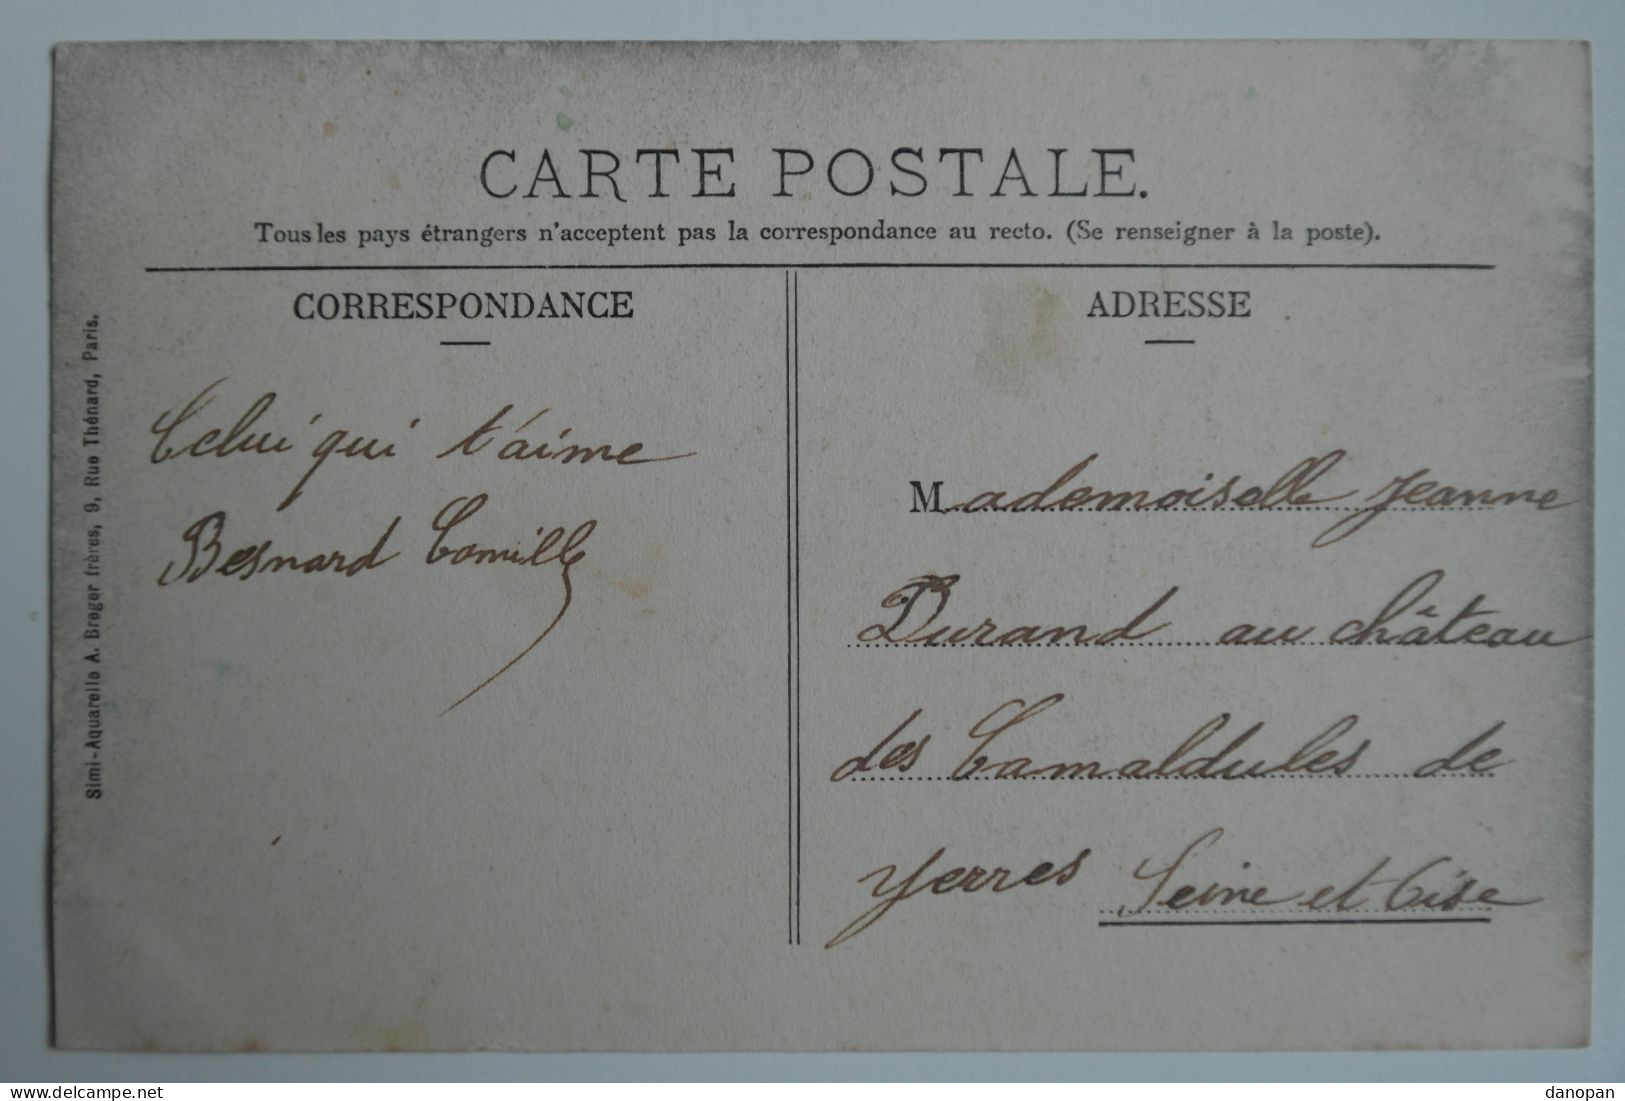 CARTE POSTALE.
Tous les pays étrangers n'acceptent pas la correspondance au recto. (Se renseigner à la poste).
CORRESPONDANCE
Celui qui t'aime
Besnard Camille
ADRESSE
Mademoiselle Jeanne
Durand au château
des Camaldules de
Yerres Seine et Oise
Simi-Aquarelle A. Breger frères, 9, Rue Thénard, Paris.
delcampe.net
danopan